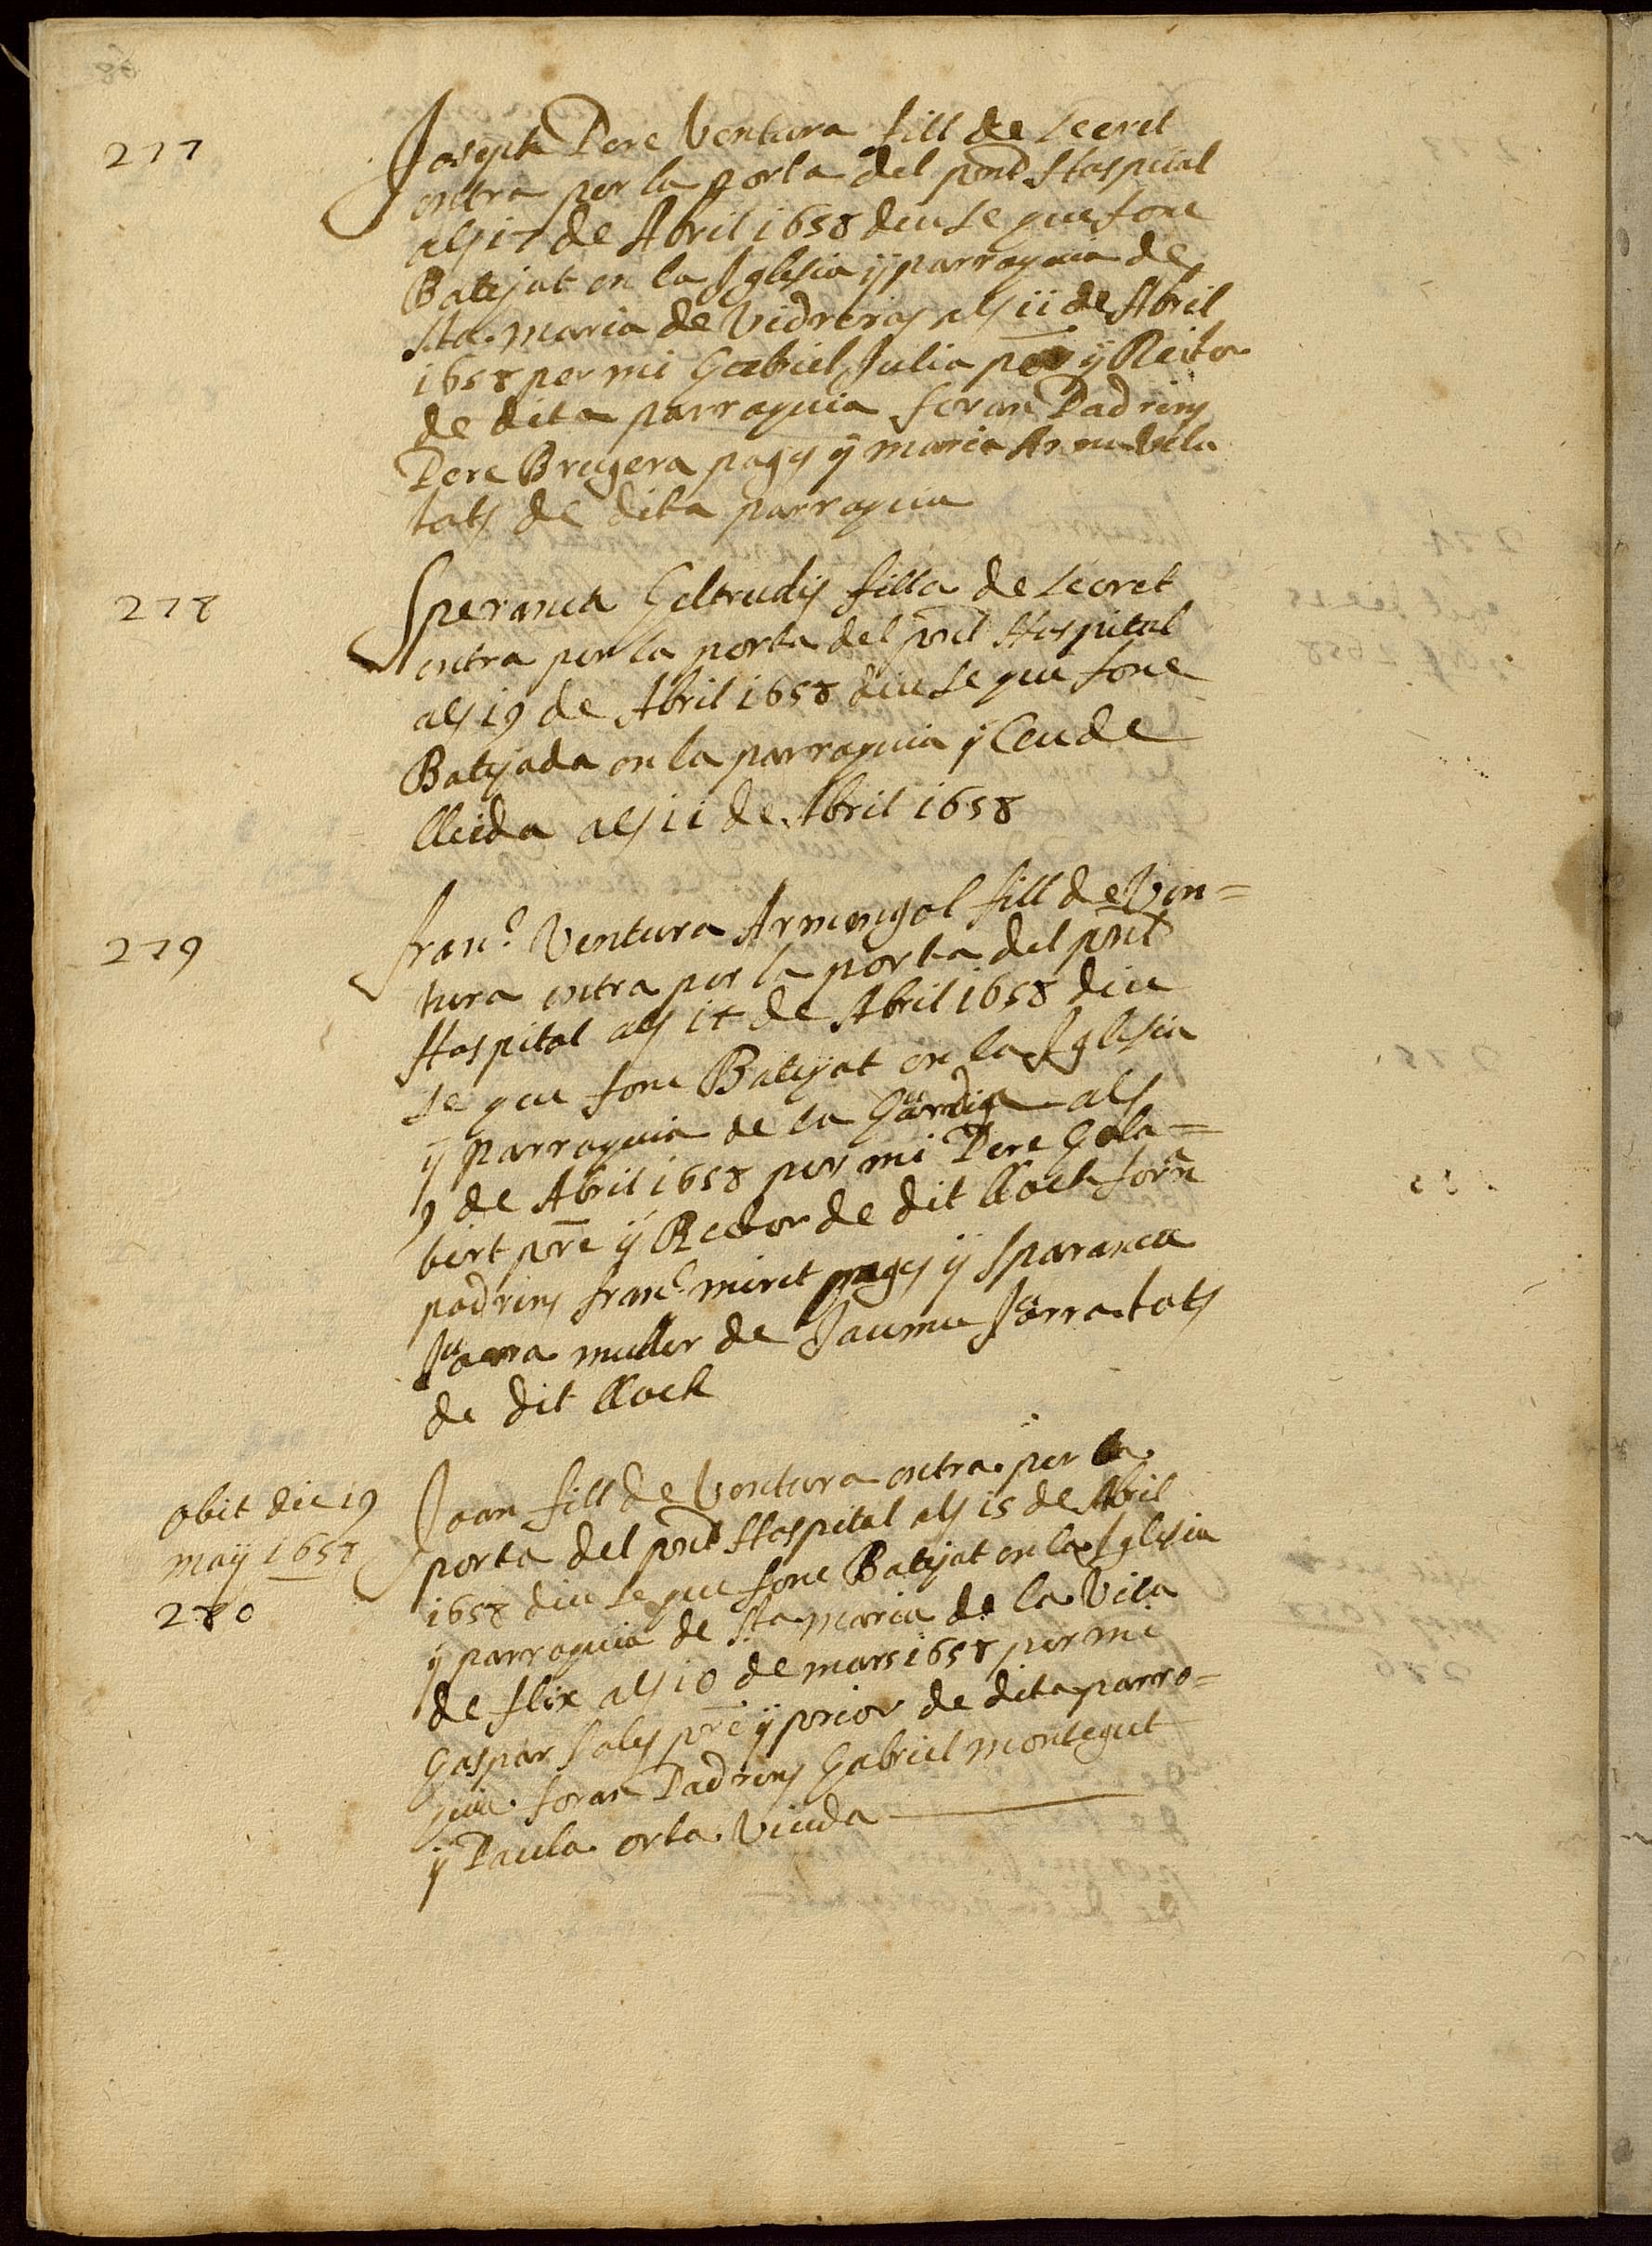 277
Joseph Pere Ventura fill de secret
entra per la porta del pnt Hospital
als 17 de Abril 1658 diu se que fonc
Batejat en la Iglesia ÿ parroquia de
Sta. Maria de Vidreras als 11 de Abril
1658 per mi Gabriel Julia pre ÿ Reito
de dita parroquia foran Padrins
Pere Brugera pages ÿ maria
tots de dita parroquia
278
Speranca Geltrudis filla de secret
entra per la porta del pnt Hospital
als 19 de Abril 1658 diu se que fonc
Batejada en la parroquia ÿ Ceu de
lleida als 11 de Abril 1658
279
franc Ventura Armengol fill de Ven=
tura entra per la porta del pnt
Hospital als 17 de Abril 1658 diu
se que fonc Batejat en la Iglesia
ÿ parroquia de la Guardia als
9 de Abril 1658 per mi Pere Gala=
bert pre ÿ Rector de dit lloch foran
padrins franc miret pages ÿ Sparanca
muller de Jaume tots
de dit lloch
obit die 19
maÿ 1658
280
Joan fill de Ventura entra per la
porta del pnt Hospital als 15 de Abril
1658 diu se que fonc Batejat en la Iglesia
ÿ parroquia de Sta maria de la Vila
de flix als 10 de mars 1658 per mi
Gaspar Sales pre ÿ prior de dita parro=
quia foran Padrins Gabriel montegut
ÿ Paula orta Viuda